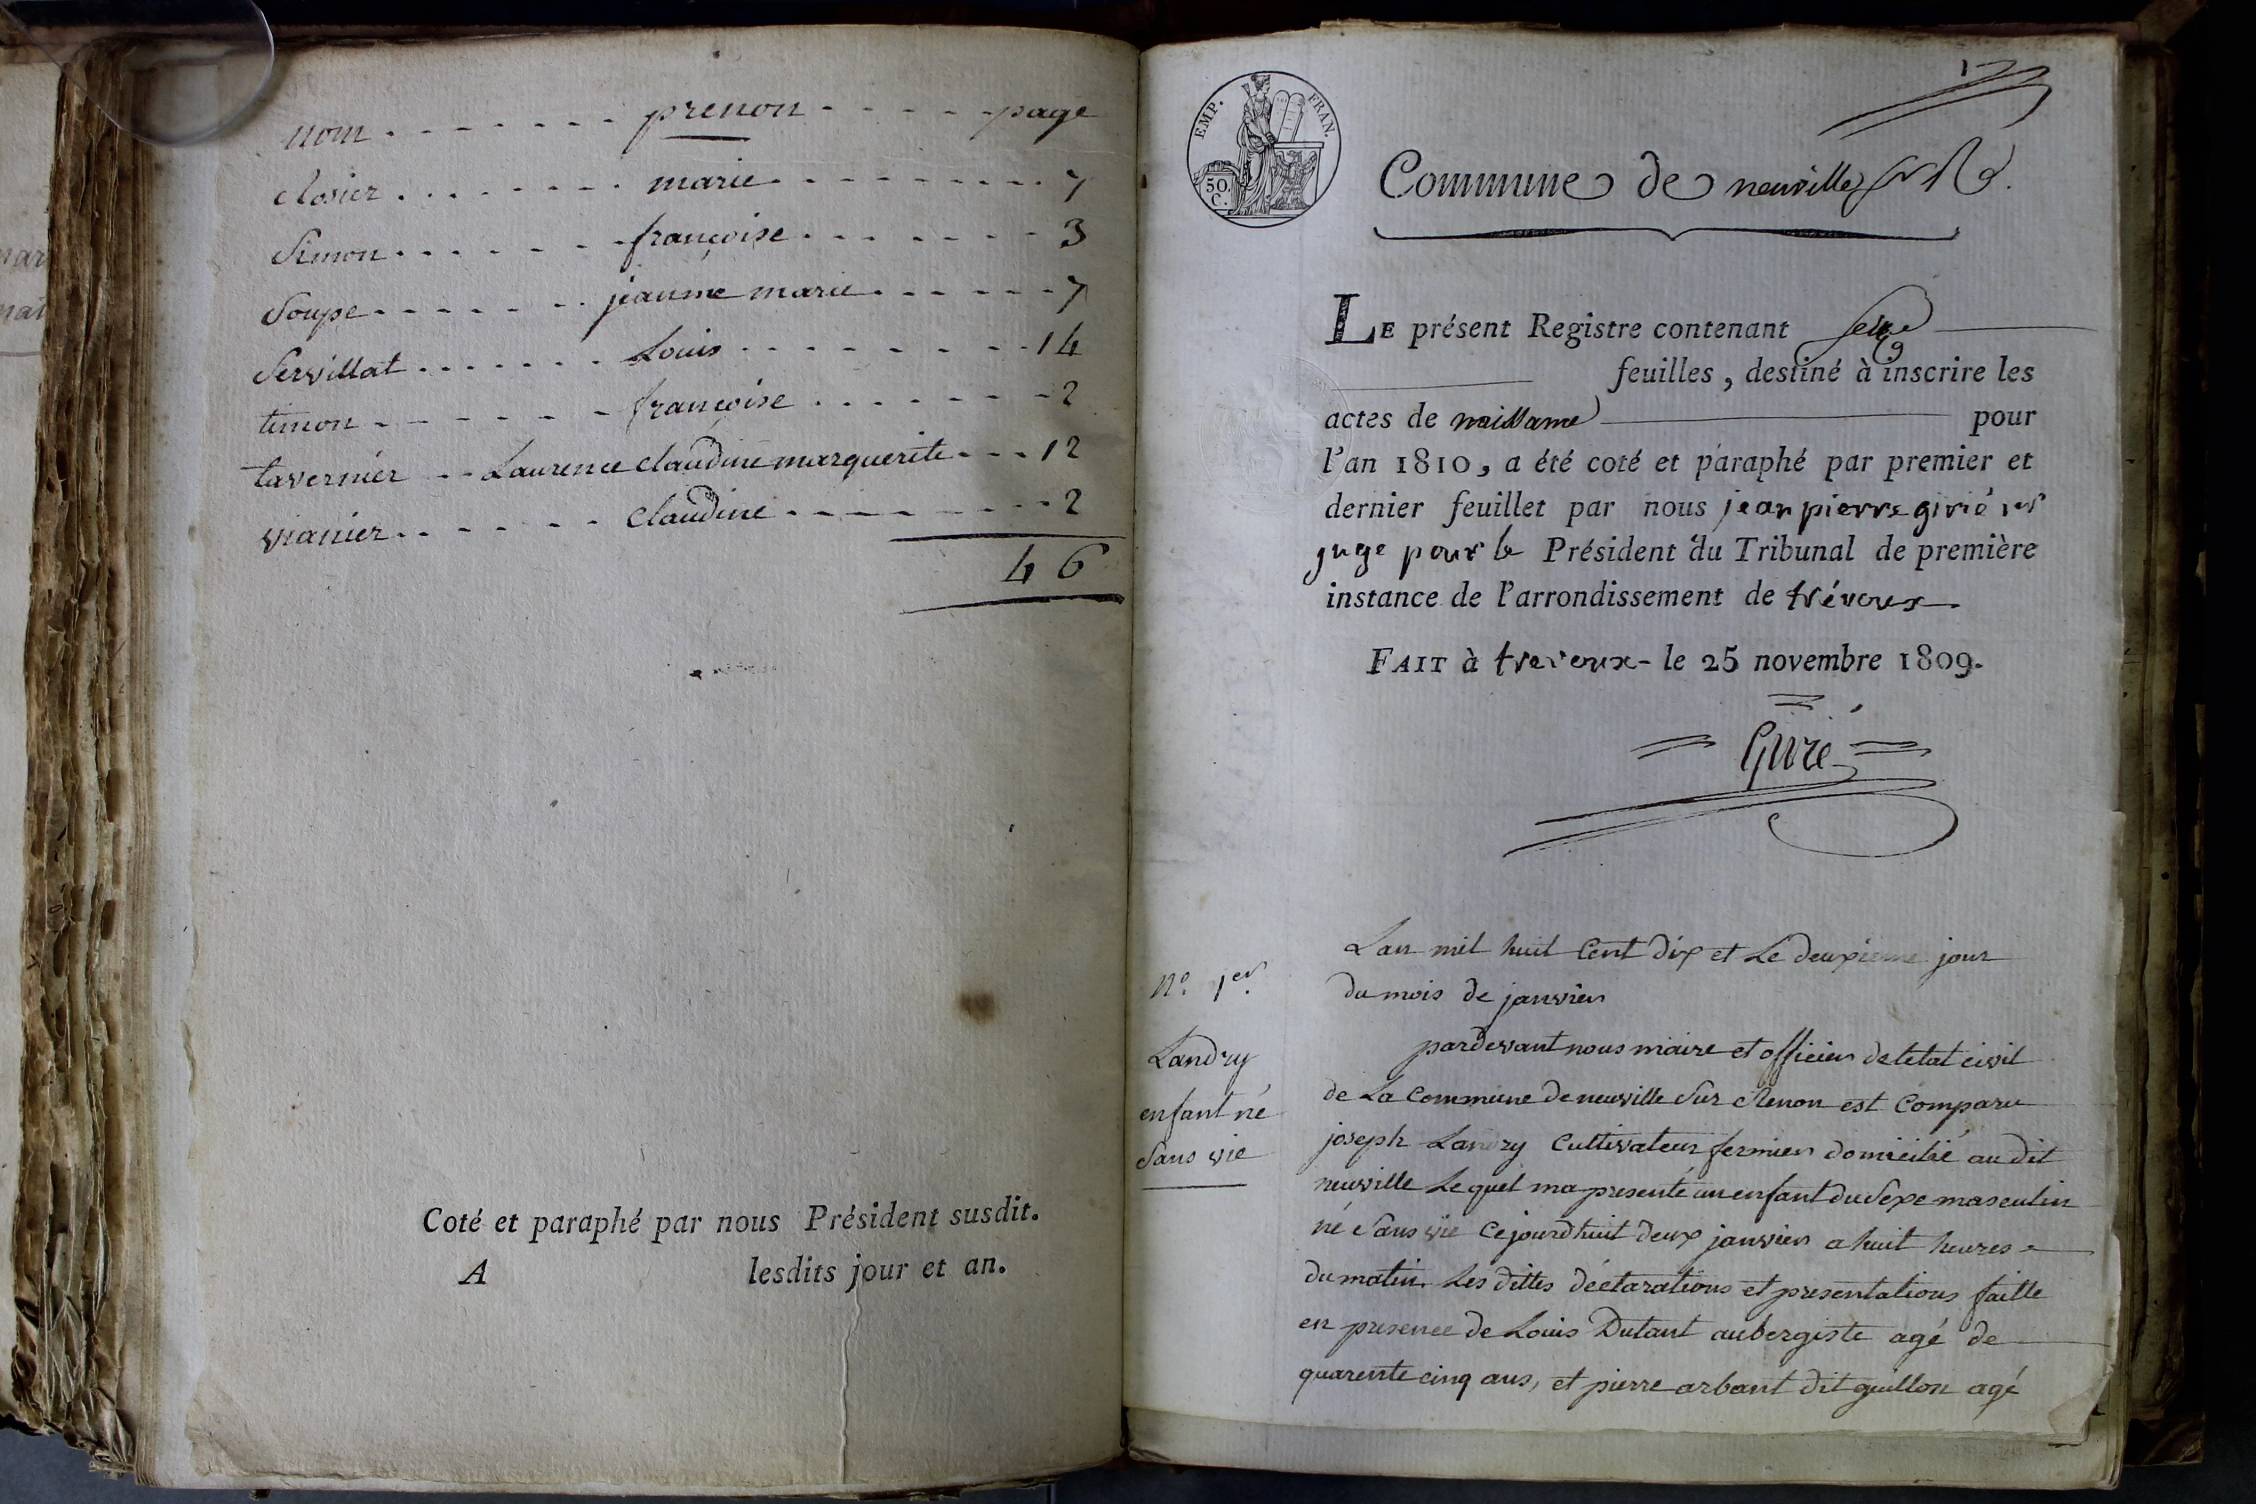 nom prenon page
closier marie 7
Simon françoise 3
Soupe jeanne marie 7
Servillat Louis 14
timon françoise 2
tavernier Laurence claudine marguerite 12
vianier claudine 2
46
Coté et paraphé par nous Président susdit.
A lesdits jour et an.
1
EMP. FRAN.
50. C.
Commune de neuville
LE présent Registre contenant seize
feuilles, destiné à inscrire les
actes de naissance pour
l'an 1810, a été coté et paraphé par premier et
dernier feuillet par nous jean pierre girié
juge pour le Président du Tribunal de première
instance de l'arrondissement de trévoux
FAIT à trevoux - le 25 novembre 1809.
Girié
n.º 1er
Landry
enfant né
Sans vie
Lan mil huit Cent dix et Le deuxieme jour
du mois de janvier
pardevant nous maire et officier de letat civil
de La Commune de neuville Sur Renon est Comparu
joseph Landry Cultivateur fermier domicilié au dit
neuville Le quel ma presenté un enfant du Sexe masculin
né Sans vie Cejourdhuit deux janvier a huit heures
du matin. Les dittes déclarations et presentations faitte
en presence de Louis Dutant aubergiste agé de
quarente cinq ans, et pierre arbant dit guillon agé